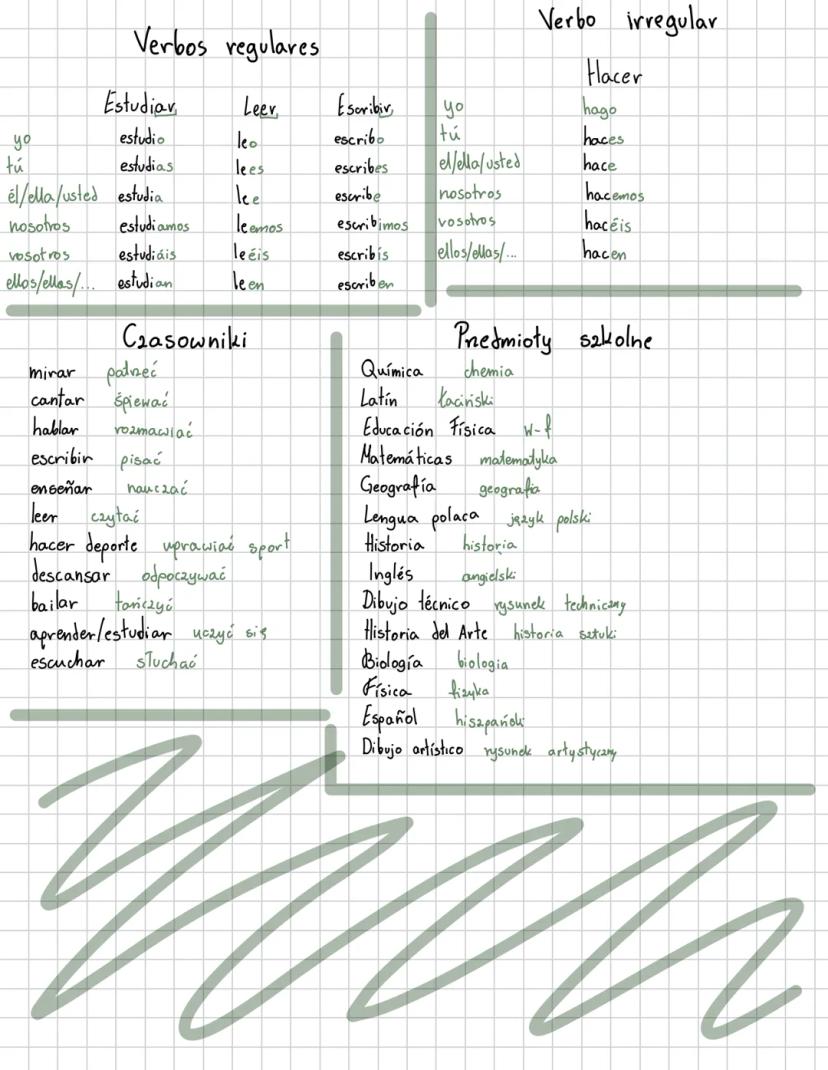 Verbos regulares
Estudiar Leer Escribir
yo estudio leo escribo
tú estudias lees escribes
él/ella/usted estudia lee escribe
nosotros estudiamos leemos escribimos
vosotros estudiáis leéis escribís
ellos/ellas/... estudian leen escriben
Verbo irregular
Hacer
yo hago
tú haces
el/ella/usted hace
nosotros hacemos
vosotros hacéis
ellos/ellas/... hacen
Czasowniki
mirar patrzeć
cantar śpiewać
hablar rozmawiać
escribir pisać
enseñar nauczać
leer czytać
hacer deporte uprawiać sport
descansar odpoczywać
bailar tańczyć
aprender/estudiar uczyć się
escuchar słuchać
Przedmioty szkolne
Química chemia
Latín łaciński
Educación Física w-f
Matemáticas matematyka
Geografía geografia
Lengua polaca język polski
Historia historia
Inglés angielski
Dibujo técnico rysunek techniczny
Historia del Arte historia sztuki
Biología biologia
Física fizyka
Español hiszpański
Dibujo artístico rysunek artystyczny